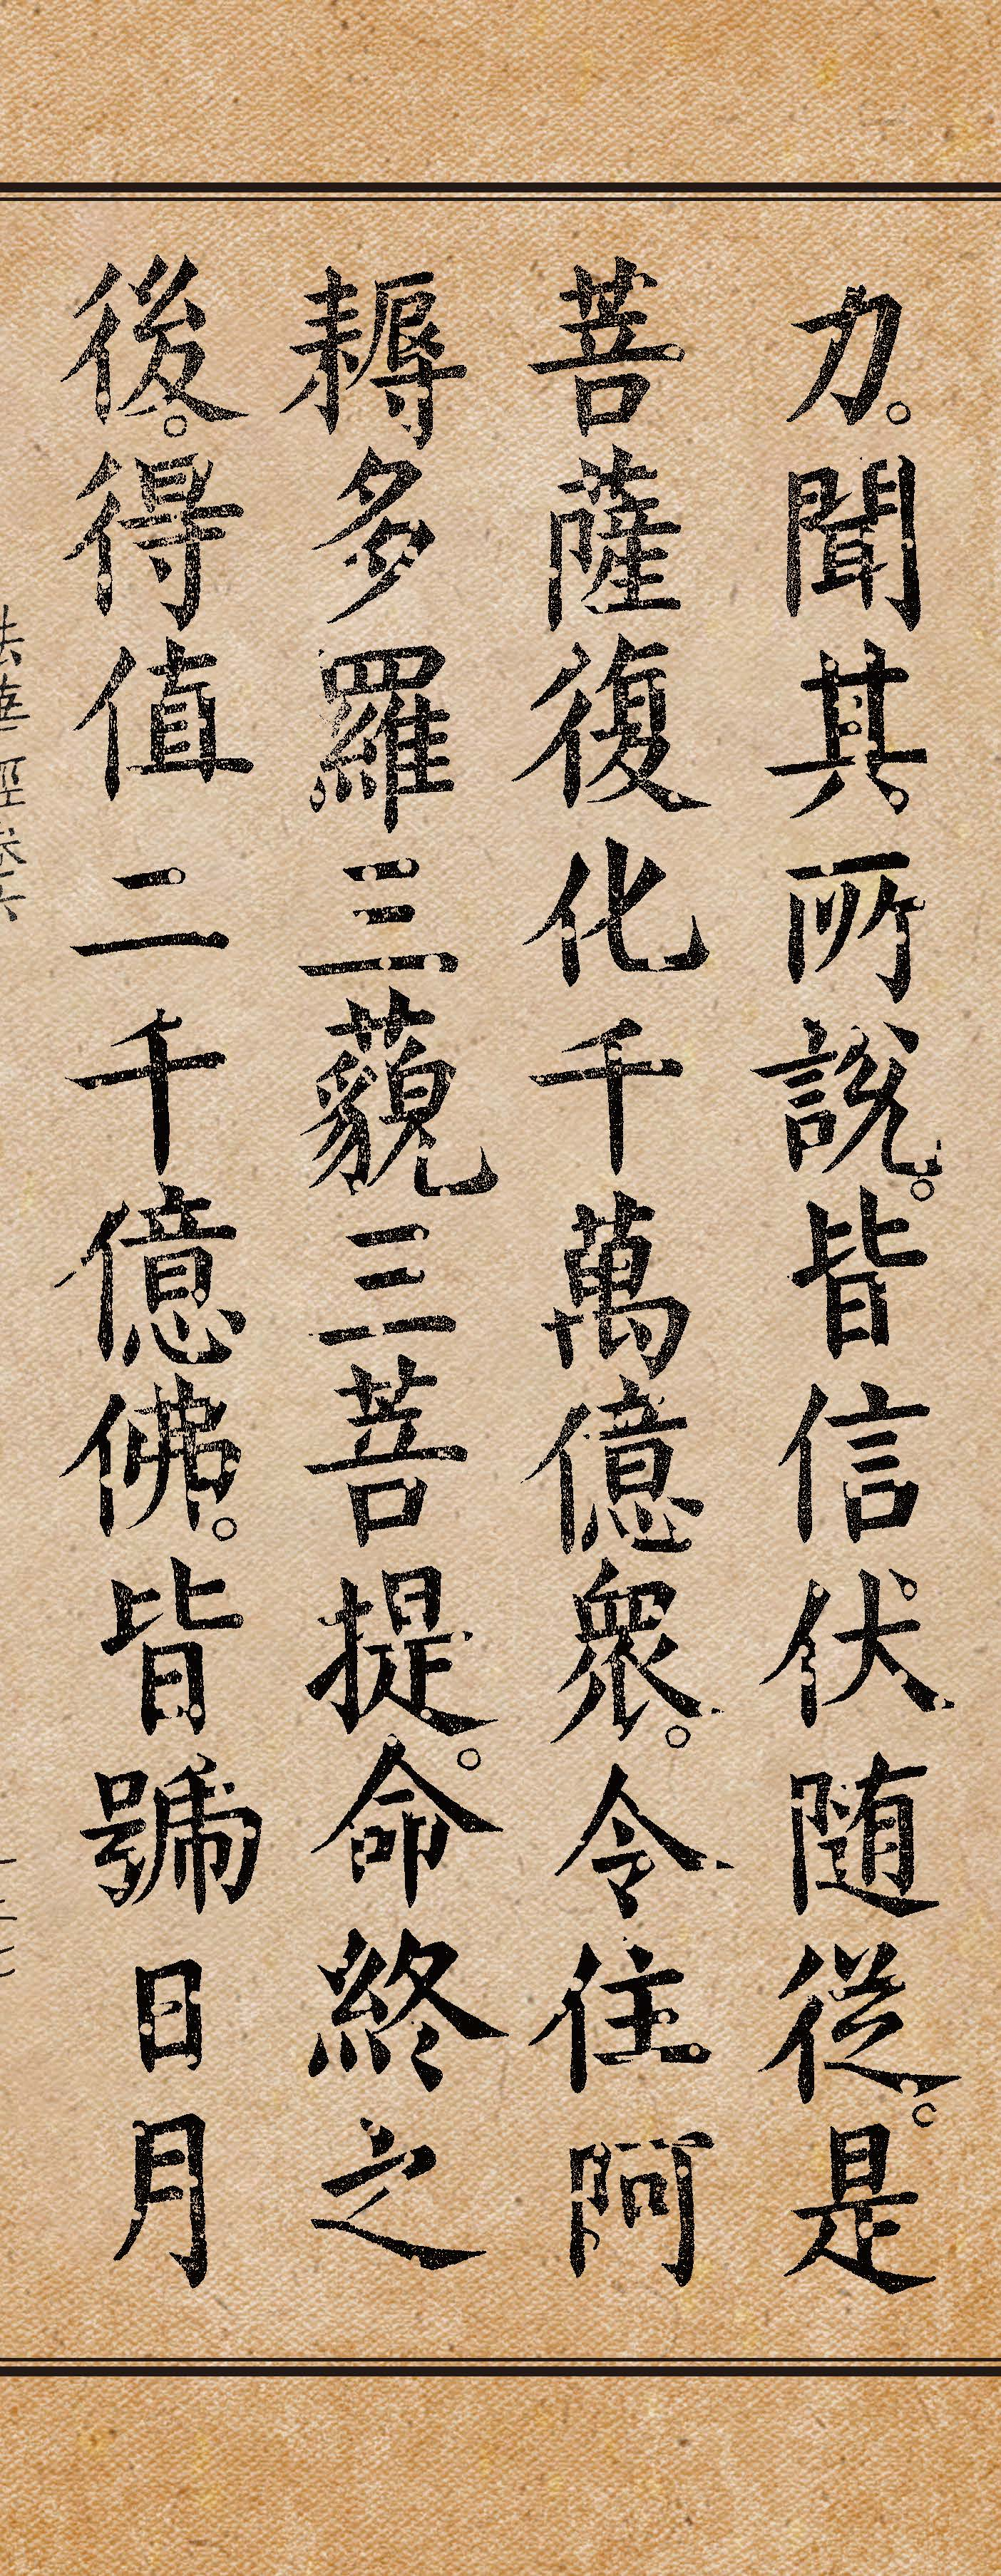 力。聞其所說。皆信伏随從。是
菩薩復化千萬億衆。令住阿
耨多羅三藐三菩提。命終之
後。得值二千億佛。皆號日月
法華經卷六